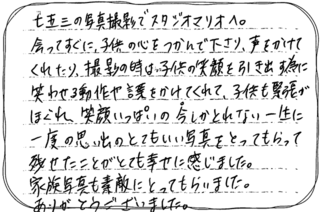 七五三の写真撮影でスタジオマリオへ。
会ってすぐに、子供の心をつかんで下さり、声をかけて
くれたり、撮影の時は子供の笑顔を引き出す為に
笑わせる動作や話をかけてくれて、子供も緊張が
ほぐれ、笑顔いっぱいの今しかとれない一生に
一度の思い出のとてもいい写真をとってもらって
残せたことがとても幸せに感じました。
家族写真も素敵にとってもらいました。
ありがとうございました。